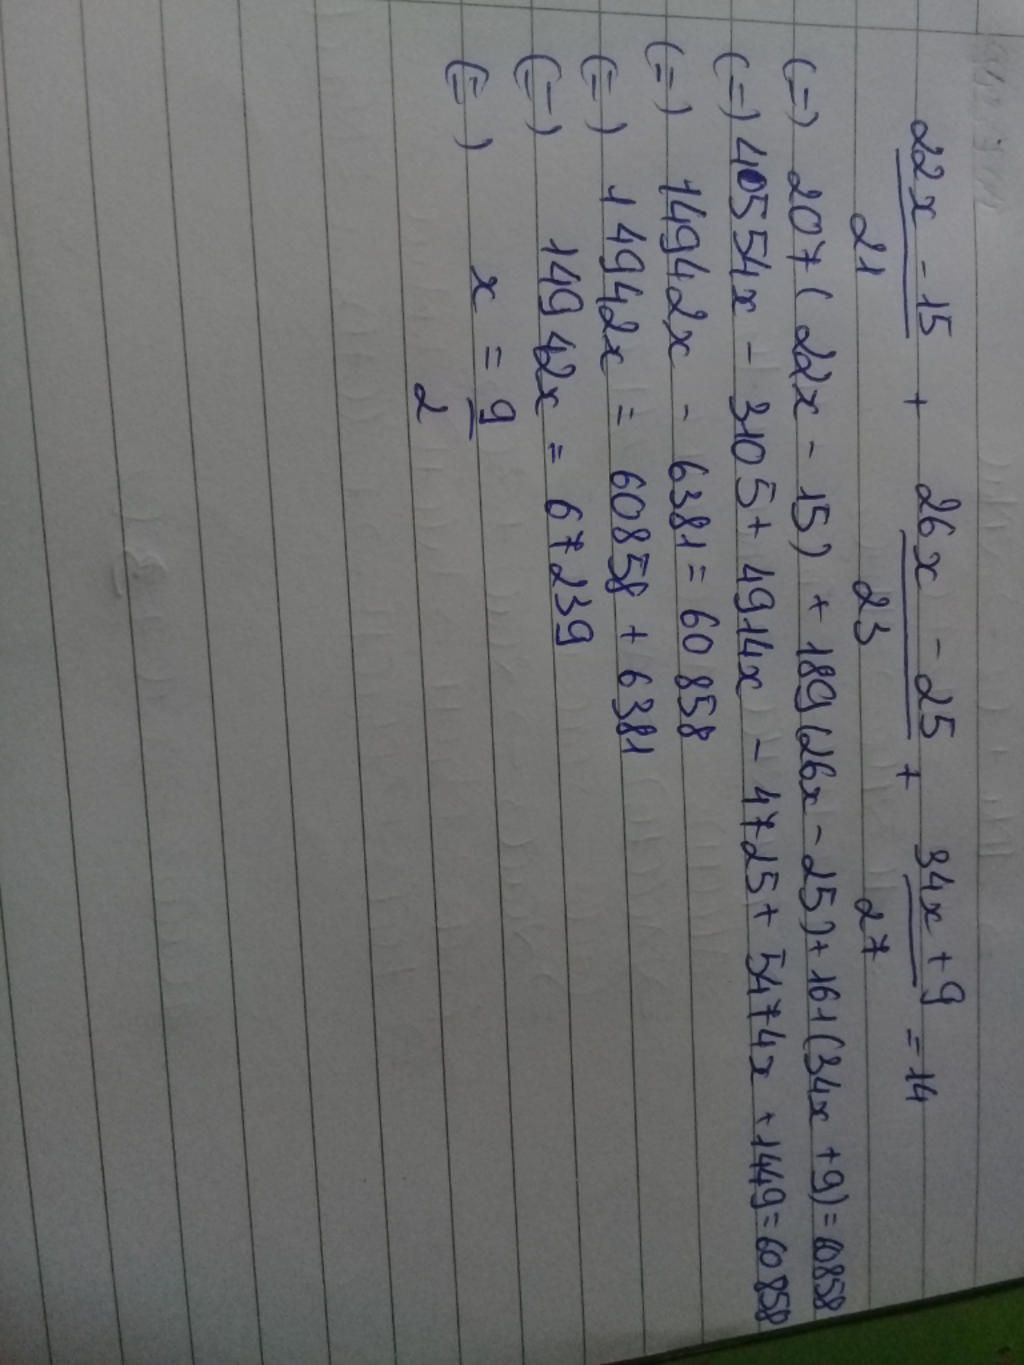 22x - 15 + 26x - 25 + 34x + 9 = 14
21 23 27
(=) 207 ( 22x - 15) + 189 (26x - 25) + 161 (34x + 9) = 60858
(=) 40554x - 3105 + 4914x - 4725 + 5474x + 1449 = 60858
(=) 14942x - 6381 = 60858
(=) 14942x = 60858 + 6381
(=) 14942x = 67239
(=) x = 9
2